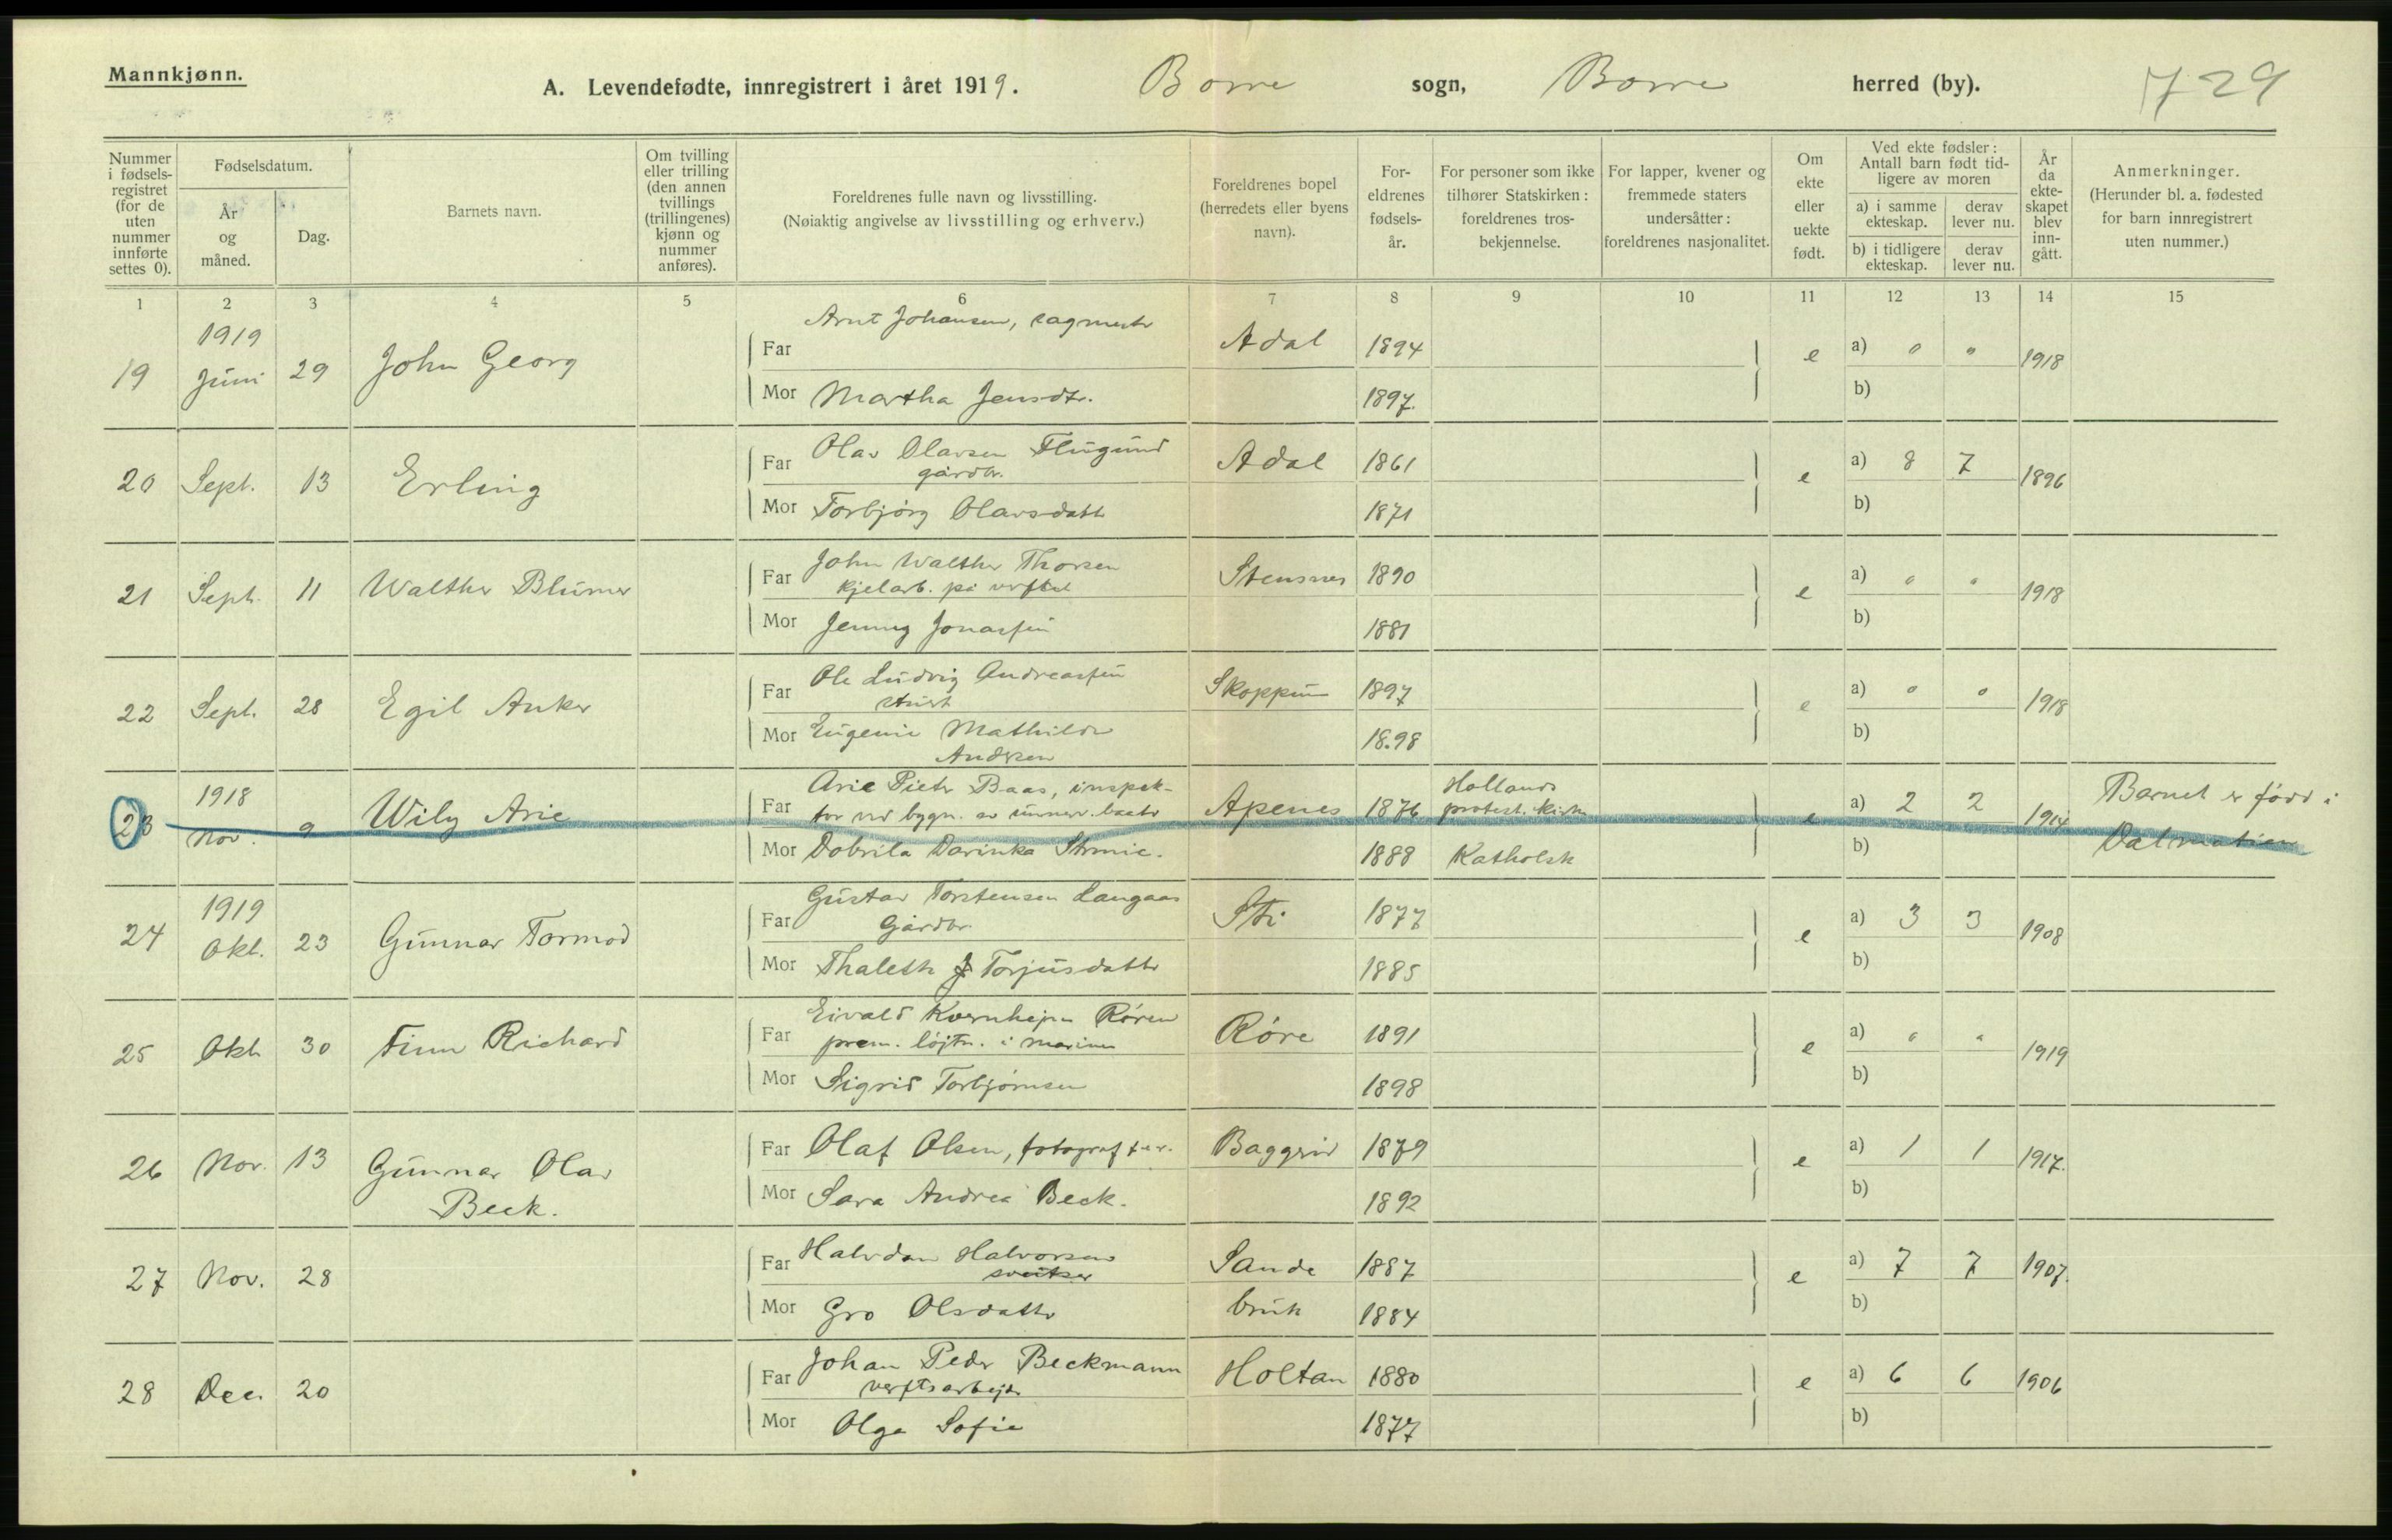 Mannkjønn.
A. Levendefødte, innregistrert i året 1919. Borre sogn, Borre herred (by). 729
Nummer i fødsels-registret (for de uten nummer innførte settes 0).
Fødselsdatum.
År og måned.
Dag.
Barnets navn.
Om tvilling eller trilling (den annen tvillings (trillingenes) kjønn og nummer anføres).
Foreldrenes fulle navn og livsstilling.
(Nøiaktig angivelse av livsstilling og erhverv.)
Foreldrenes bopel (herredets eller byens navn).
For-eldrenes fødsels-år.
For personer som ikke tilhører Statskirken: foreldrenes tros-bekjennelse.
For lapper, kvener og fremmede staters undersåtter: foreldrenes nasjonalitet.
Om ekte eller uekte født.
Ved ekte fødsler: Antall barn født tid-ligere av moren
a) i samme ekteskap. derav lever nu.
b) i tidligere ekteskap. derav lever nu.
År da ekte-skapet blev inn-gått.
Anmerkninger.
(Herunder bl. a. fødested for barn innregistrert uten nummer.)
1 2 3 4 5 6 7 8 9 10 11 12 13 14 15
1919
19 Juni 29 John Georg
Far Arnt Johansen, sagmestr Adal 1894 e a) 0 0 1918
Mor Martha Jensdtr. 1897. b)
20 Sept. 13 Erling
Far Olav Olavsen Flugund Adal 1861 e a) 8 7 1896
gårdbr.
Mor Torbjørg Olavsdatt 1871 b)
21 Sept. 11 Walther Blumer
Far John Walther Thorsen Stensnes 1890 e a) 0 0 1918
kjelarb. på verftet
Mor Jenny Jonassen 1881 b)
22 Sept. 28 Egil Anker
Far Ole Ludvig Andreassen Skoppum 1897 e a) 0 0 1918
Mor Eugenie Mathilde 1898 b)
Andersen
1918
23 Nov. 9 Wily Arie
Far Arie Pieter Baas, inspek- Apenes 1876 Hollands protest. kirke e a) 2 2 1914 Barnet er født i
tor ved bygn. av baete
Mor Dobrila Darinka Strmic. 1888 Katholsk b) Dalmatien
1919
24 Okt. 23 Gunnar Tormod
Far Gustav Torstensen Langaas Sti 1877 e a) 3 3 1908
Gårdbr.
Mor Thaleth J Torjusdattr 1885 b)
25 Okt 30 Finn Richard
Far Eivald Kvernhejm Røren Røre 1891 e a) 0 0 1919
prem. løjtn. i marinen
Mor Sigrid Torbjørnsen 1898 b)
26 Nov. 13 Gunnar Olav
Beck.
Far Olaf Olsen, fotograf Baggerød 1879 e a) 1 1 1917.
Mor Sara Andrea Beck. 1892 b)
27 Nov. 28
Far Halvdan Halvorsen Sande 1887 e a) 7 7 1907.
sveitser
Mor Gro Olsdattr bruk 1884 b)
28 Dec. 20
Far Johan Peder Beckmann Holtan 1880 e a) 6 6 1906
verftsarbejdr
Mor Olga Sofie 1877 b)